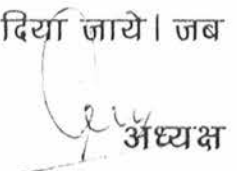 दिया जाये। जब
अध्यक्ष